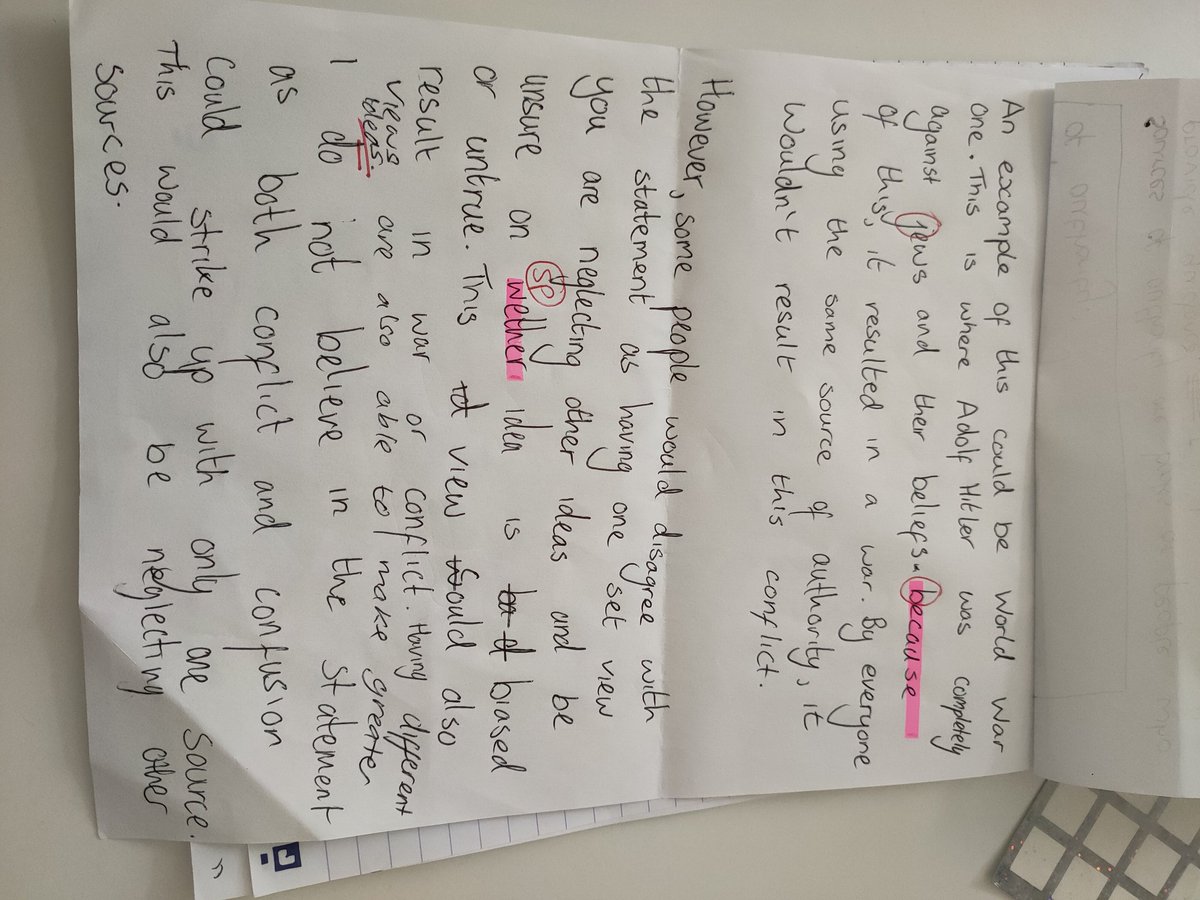 An example of this could be World War
one. This is where Adolf Hitler was completely
against jews and their beliefs. because
of this, it resulted in a war. By everyone
using the same source of authority, it
wouldn't result in this conflict.
However, some people would disagree with
the statement as having one set view
you are neglecting other ideas and be
sp
unsure on wether idea is biased
or untrue. This view could also
result in war or conflict. Having different
views are also able to make greater
ideas.
I do not believe in the statement
as both conflict and confusion
could strike up with only one source.
This would also be neglecting other
sources.